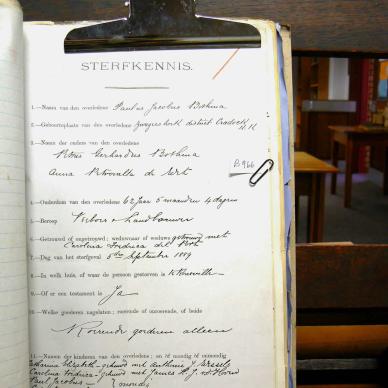 STERFKENNIS.
1.—Naam van den overledene Paulus Jacobus Bothma
2.—Geboorteplaats van den overledene district Cradock
3.—Namen der ouders van den overledene
Gerhardus Bothma
B 966
Anna Petronella de
4.—Ouderdom van den overledene 62 jaar 5 maanden 4 dagen
5.—Beroep Landbouwer
6.—Getrouwd of ongetrouwd; weduwnaar of weduwe getrouwd met
Carolina
7.—Dag van het sterfgeval 5de September 1889
8.—In welk huis, of waar de persoon gestorven is
9.—Of er een testament is Ja
10.—Welke goederen nagelaten; roerende of onroerende, of beide
Roerende goederen alleen
11.—Namen der kinderen van den overledene; en of mondig of onmondig
Catharina Elizabeth - gehuwd met Anthonie J
Carolina - gehuwd met James H. J.
Paul Jacobus - mondig